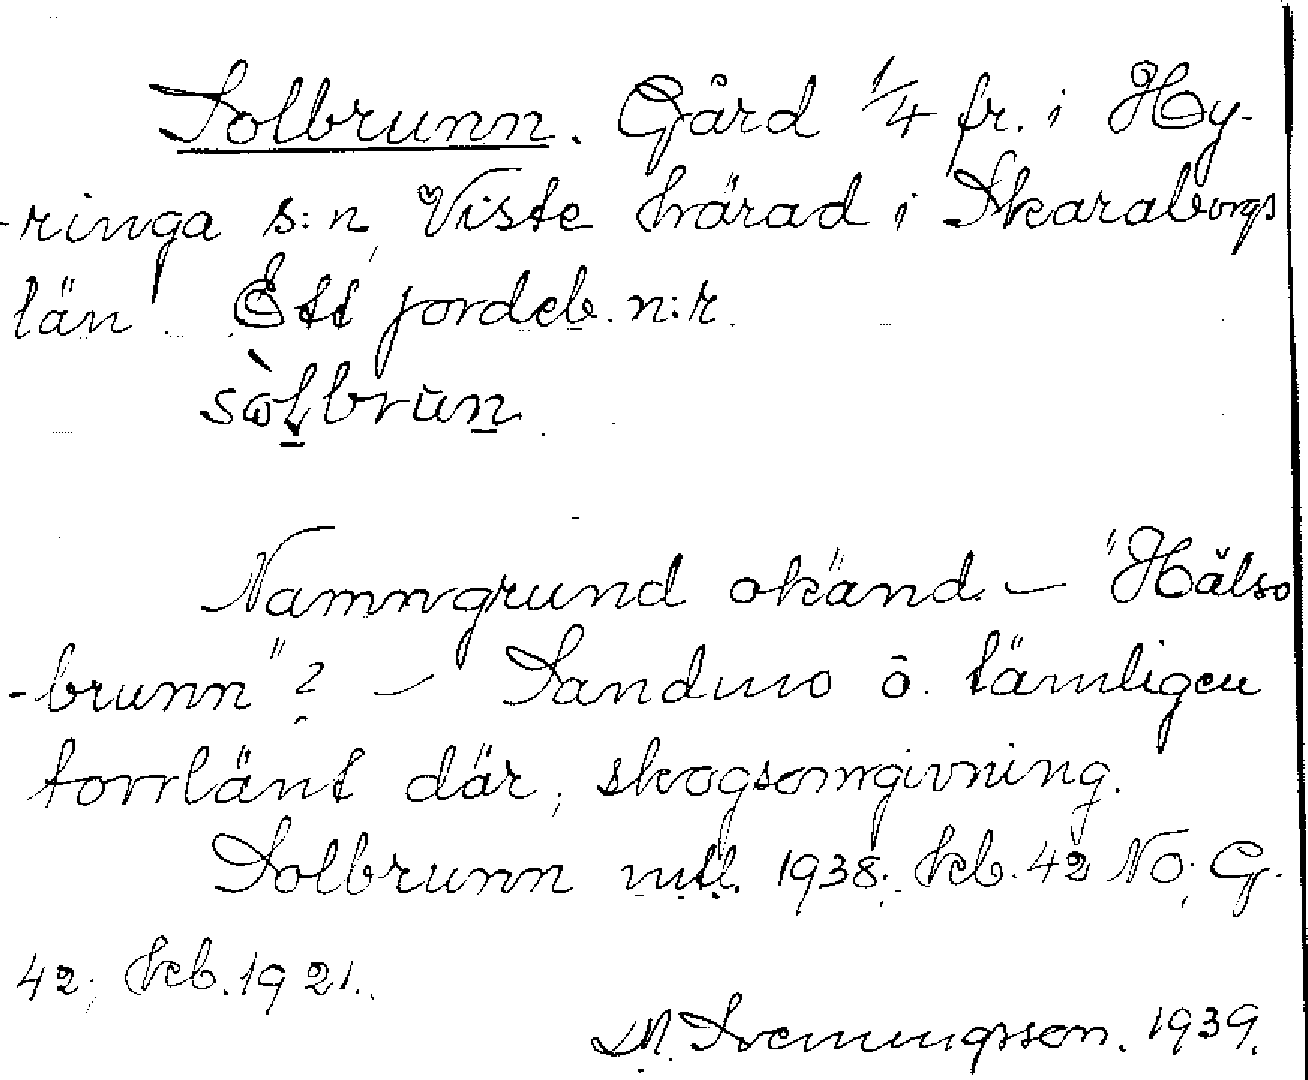 Solbrunn. Gård 1/4 fr. i Hy-
-ringa s:n, Viste härad i Skaraborgs
län. Ett jordeb. n:r.
sὼlbrun.
Namngrund okänd. – "Hälso
-brunn"? – Sandmo o. lämligen
torrlänt där, skogsomgivning.
Solbrunn mtl. 1938. Keb. 42 NO; G.
42; Keb. 1921.
M. Svenungsson. 1939.